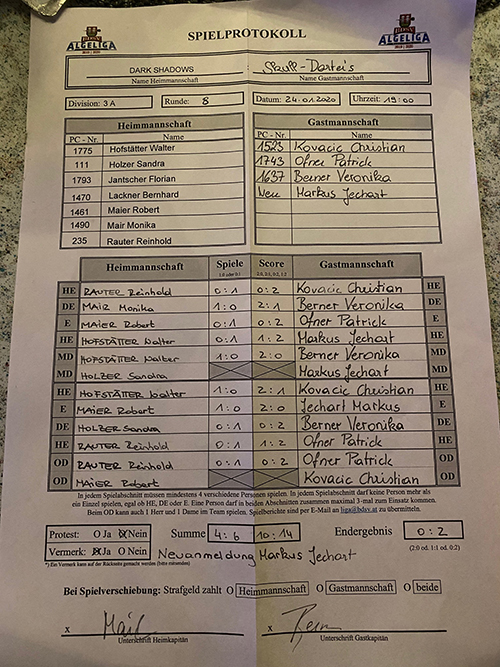 ALGELIGA SPIELPROTOKOLL ALGELIGA
DARK SHADOWS
Name Heimmannschaft Name Gastmannschaft
Division: 3 A Runde: 8 Datum: 24.01.2020 Uhrzeit: 19:00
Heimmannschaft Gastmannschaft
PC - Nr. Name PC - Nr. Name
1775 Hofstätter Walter 1523 Kovacic Christian
111 Holzer Sandra 1743 Ofner Patrick
1793 Jantscher Florian 1637 Berner Veronika
1470 Lackner Bernhard Neu Markus Jechart
1461 Maier Robert
1490 Mair Monika
235 Rauter Reinhold
Heimmannschaft Spiele Score Gastmannschaft
1:0 oder 0:1 2:0, 2:1, 0:2, 1:2
HE RAUTER Reinhold 0:1 0:2 Kovacic Christian HE
DE MAIR Monika 1:0 2:1 Berner Veronika DE
E MAIER Robert 0:1 0:2 Ofner Patrick E
HE HOFSTÄTTER Walter 0:1 1:2 Markus Jechart HE
MD HOFSTÄTTER Walter 1:0 2:0 Berner Veronika MD
MD HOLZER Sandra Markus Jechart MD
HE HOFSTÄTTER Walter 1:0 2:1 Kovacic Christian HE
E MAIER Robert 1:0 2:0 Jechart Markus E
DE HOLZER Sandra 0:1 0:2 Berner Veronika DE
HE RAUTER Reinhold 0:1 1:2 Ofner Patrick HE
OD RAUTER Reinhold 0:1 0:2 Ofner Patrick OD
OD MAIER Robert Kovacic Christian OD
In jedem Spielabschnitt müssen mindestens 4 verschiedene Personen spielen. In jedem Spielabschnitt darf keine Person mehr als
ein Einzel spielen, egal ob HE, DE oder E. Eine Person darf in beiden Abschnitten zusammen maximal 3-mal zum Einsatz kommen.
Beim OD kann auch 1 Herr und 1 Dame im Team spielen. Spielberichte sind per E-Mail an liga@bdsv.at zu übermitteln.
Protest: O Ja Nein Summe 4:6 10:14 Endergebnis 0:2
Vermerk: Ja O Nein Neuanmeldung Markus Jechart (2:0 od. 1:1 od. 0:2)
*) Ein Vermerk kann auf der Rückseite gemacht werden (bitte ankreuzen)
Bei Spielverschiebung: Strafgeld zahlt O Heimmannschaft O Gastmannschaft O beide
x x
Unterschrift Heimkapitän Unterschrift Gastkapitän